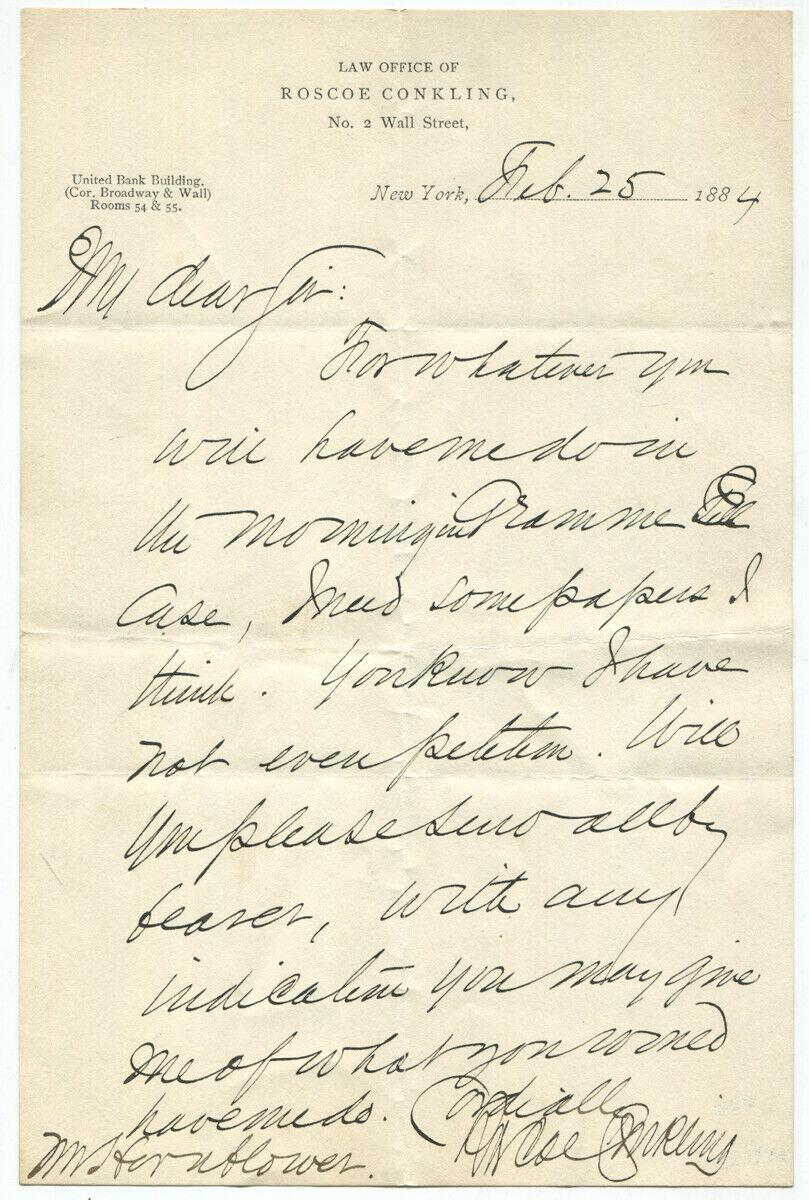 LAW OFFICE OF
ROSCOE CONKLING,
No. 2 Wall Street,
United Bank Building.
(Cor. Broadway & Wall)
Rooms 54 & 55.
New York, Feb. 25 1884
My dear Sir:
For whatever you
will have me do in
the morning in Gramme
case, I need some papers I
think. You know I have
not even petition. Will
you please send all by
bearer, with any
indication you may give
me of what you would
have me do. Cordially
Roscoe Conkling
Mr Hornblower.